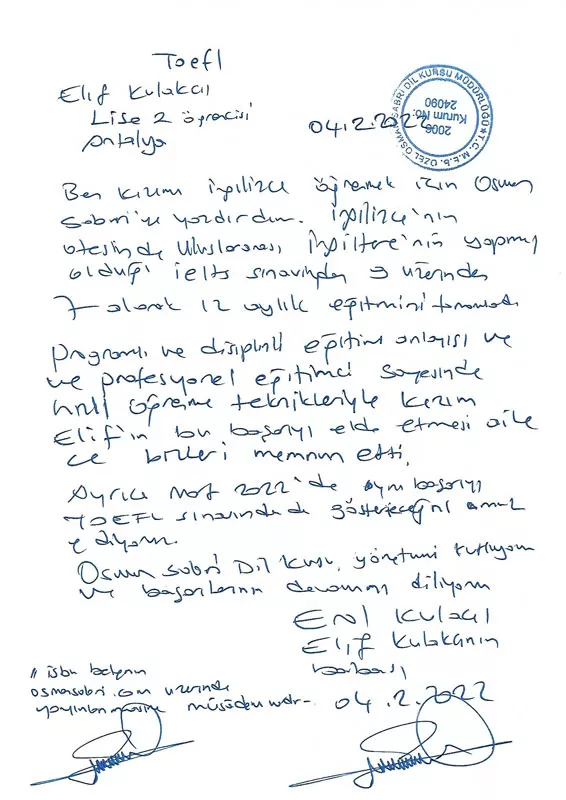 Toefl
Elif Kulakcıl
Lise 2 öğrencisi
Antalya
04.2.2022
SABRİ DİL KURSU MÜDÜRLÜĞÜ * T.C. M.E.B. ÖZEL OSMAN
2006
Kurum No:
24090
Ben kızımı ingilizce öğrenmek için Osman
Sabri'ye yazdırdım. ingilizce'nin
ötesinde uluslararası ingiltere'nin yapmış
olduğu ielts sınavından 9 üzerinden
7 alarak 12 aylık eğitimini tamamladı
Programlı ve disiplinli eğitim anlayışı ve
ve profesyonel eğitimci sayesinde
hızlı öğrenme teknikleriyle kızım
Elif'in bu başarıyı elde etmesi aile
ce bizleri memnun etti.
Ayrıca Mart 2022'de aynı başarıyı
TOEFL sınavında da göstereceğini umut
ediyorum.
Osman Sabri Dil Kursu, yönetimi kutluyorum
ve başarılarının devamını diliyorum
Elif Kulakcının
babası
04.2.2022
// işbu belgenin
osmansabri.com üzerinde
yayınlanmasına müsademe vardır.